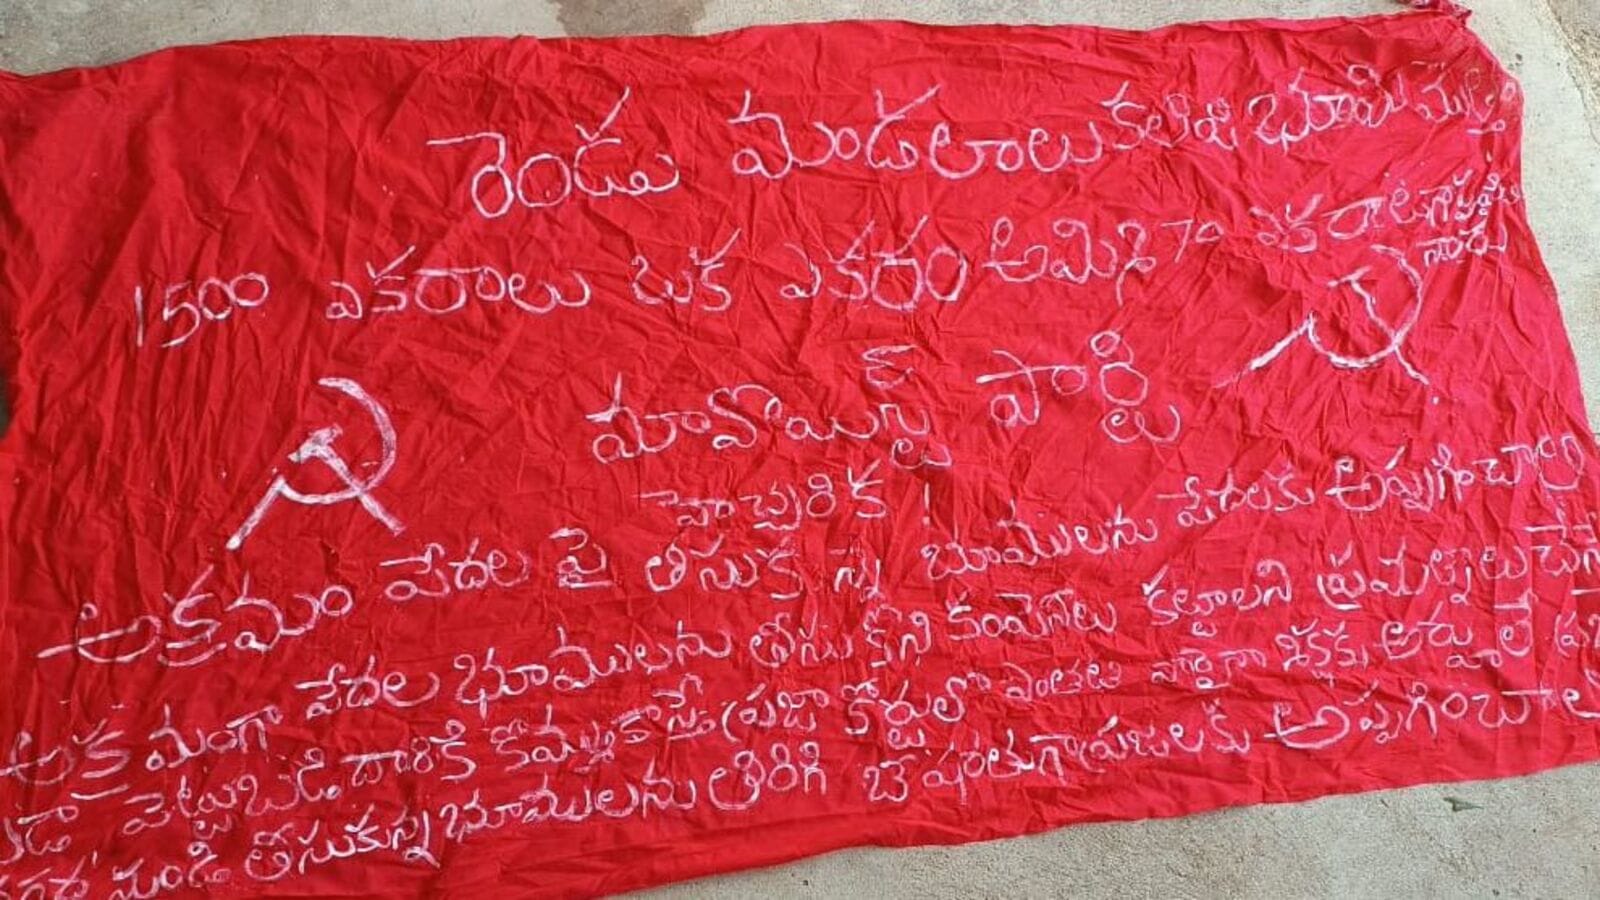 రెండు మండలాలు కలిపి భూమి మొత్తం
1500 ఎకరాలు ఒక ఎకరం అమిన 70 ఎకరాలు
గారు
మావోయిస్ట్ పార్టీ
హెచ్చరిక !
అక్రమం పేదల పై తీసుకున్న భూములను పేదలకు అప్పగించాలి
అక్రమంగా పేదల భూములను తీసుకొని కంపెనీలు కట్టాలని ప్రయత్నాలు
పెట్టుబడిదారికి కొమ్ముకాస్తే ప్రజా కోర్టులో ఎంతటి వారైనా శిక్షకు అర్హులే
నుండి తీసుకున్న భూములను తిరిగి బేషరతుగా ప్రజలకు అప్పగించాలి